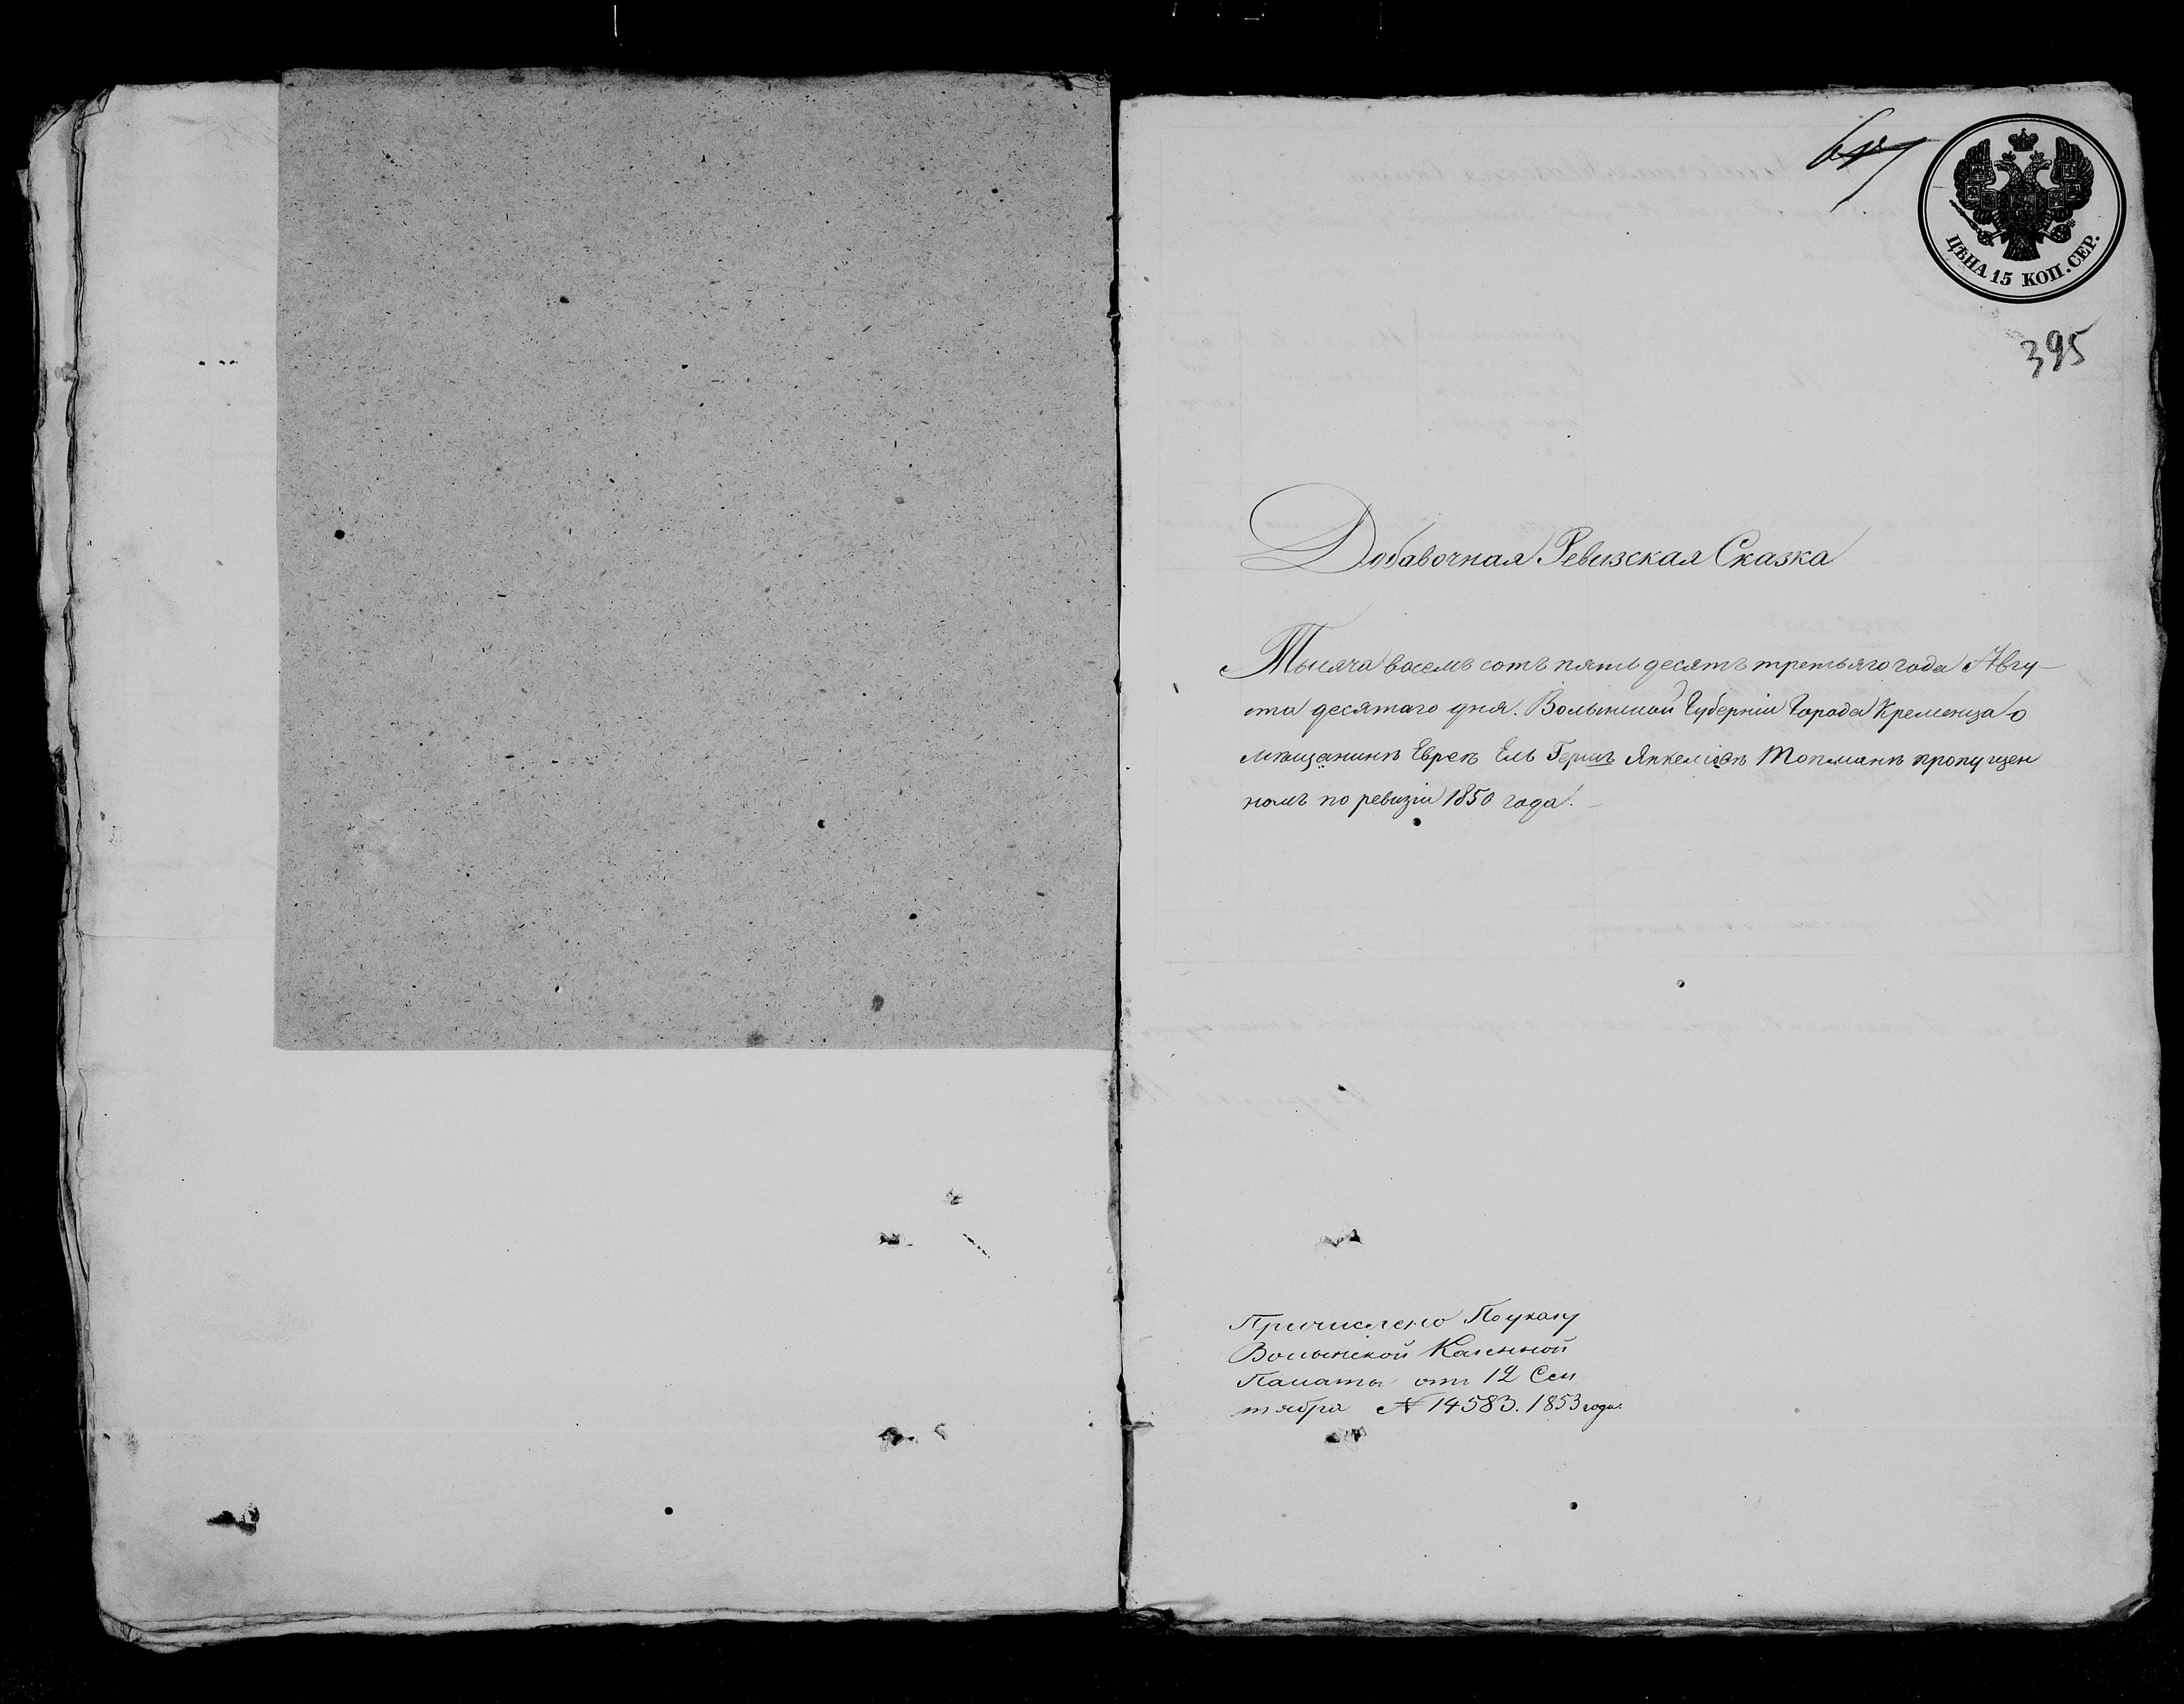 ЦѢНА 15 КОП. СЕР.
395
Добавочная Ревизская Сказка
Тысяча восемь сотъ пять десятъ третьяго года Авгу-
ста десятаго дня. Волынской Губерніи Города Кременца о
мѣщанинѣ Евреѣ Ель Гершъ Янкелiовѣ пропущен
номъ по ревизіи 1850 года. -
Причислено По указу
Волынской Казенной
Палаты отъ 12 Сен
тября № 14583. 1853 года.